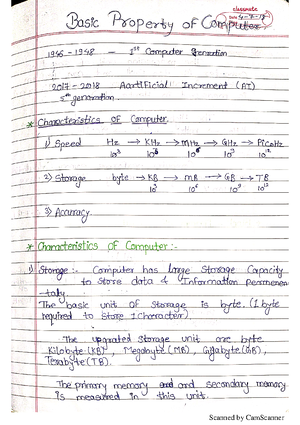 classmate
Basic Property of Computer
Date 4-7-17
1945 - 1948 - 1st Computer Generation
2017 - 2018 Aartificial Increment (AI)
5th generation.
* Characteristics of Computer.
1) Speed Hz → KHz → MHz → GHz → PicoHz
10³ 10⁶ 10⁹ 10¹²
2) Storage byte → KB → MB → GB → TB
10³ 10⁶ 10⁹ 10¹²
3) Accuracy
* Characteristics of Computer :-
1) Storage :- Computer has large Storage Capacity
to Store data & Information permenen
-taly.
The basic unit of Storage is byte. (1 byte
required to Store 1 Character).
The upgrated Storage unit are byte
Kilobyte (KB), Megabyte (MB), Gigabyte (GB),
Terabyte (TB).
The primary memory and secondary memory
is measured in this unit.
Scanned by CamScanner